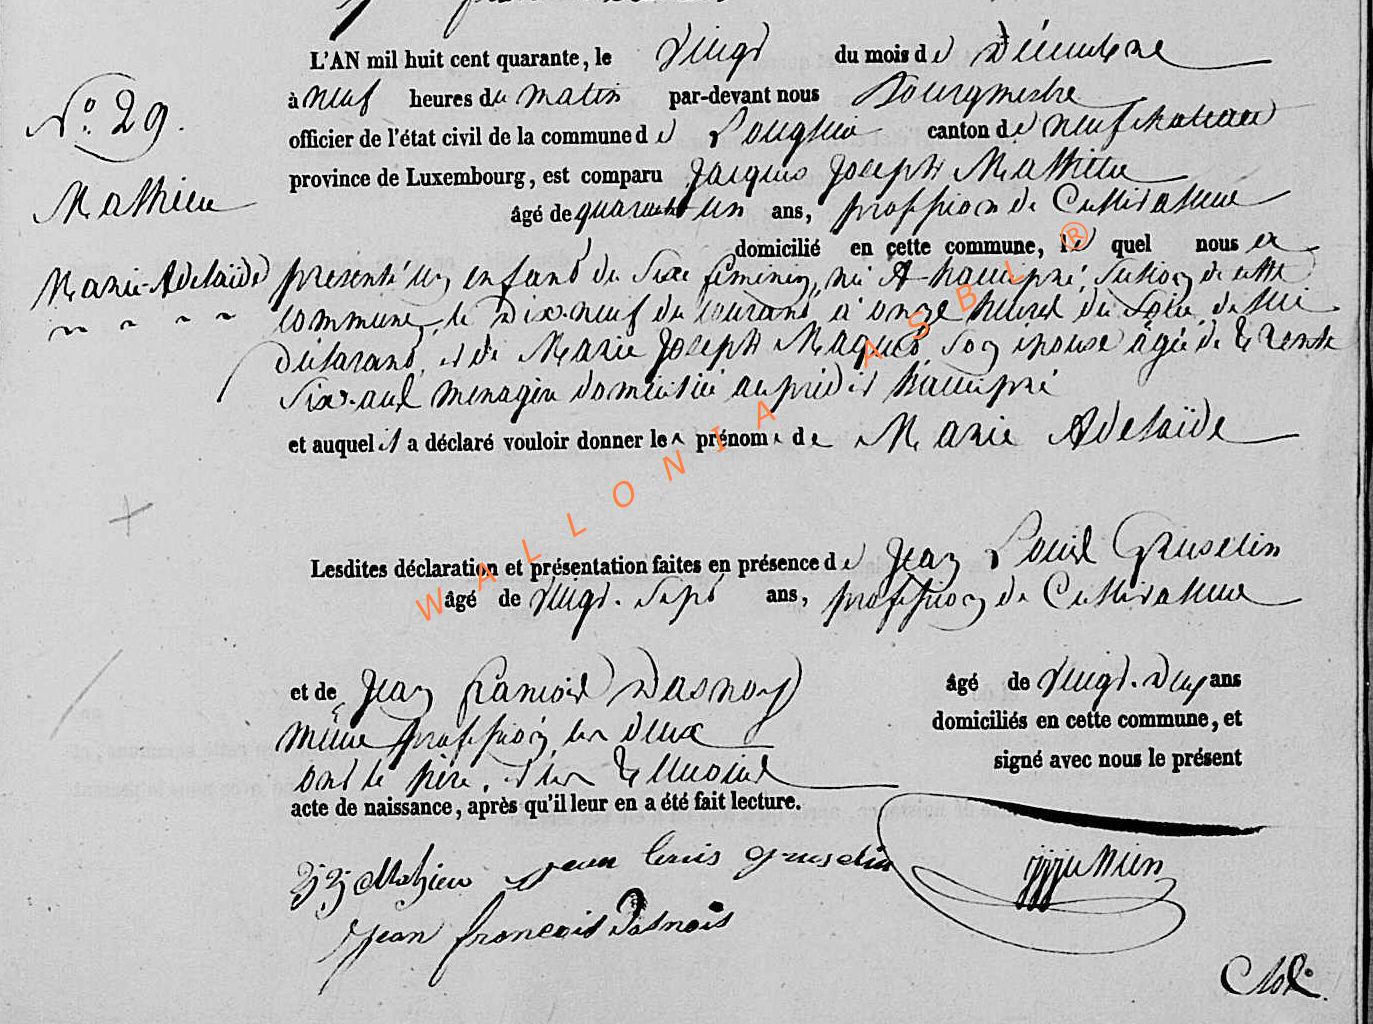 L'AN mil huit cent quarante, le vingt du mois de Décembre
N.° 29.
à neuf heures du matin par-devant nous Bourgmestre
officier de l'état civil de la commune de canton de neufchateau
Mathieu
province de Luxembourg, est comparu Jacques Joseph Mathieu
âgé de quarante un ans, profession de Cultivateur
domicilié en cette commune, le quel nous a
Marie-Adelaïde
presenté un enfant du sexe feminin, né A hamipré, section de cette
commune, le Dix-neuf du courant à onze heures du soir, de lui
déclarant, et de Marie Joseph Maquet, son épouse âgée de trente
six ans menagère domiciliée au prédit hamipré
et auquel il a déclaré vouloir donner les prénoms de Marie Adelaïde
Lesdites déclaration et présentation faites en présence de Jean Louis Gruselin
âgé de vingt-sept ans, profession de Cultivateur
et de Jean François Dasnoy âgé de vingt-deux ans
même profession, les deux domiciliés en cette commune, et
ont le père, et les témoins signé avec nous le présent
acte de naissance, après qu'il leur en a été fait lecture.
JJ Mathieu jean louis gruselin
jean françois Dasnois
WALLONIA ASBL ®